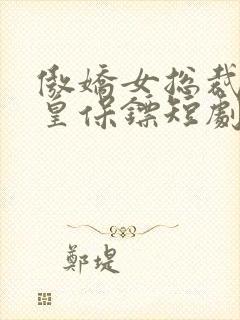 傲嬌女总裁
皇保鏢短劇
鄭堤